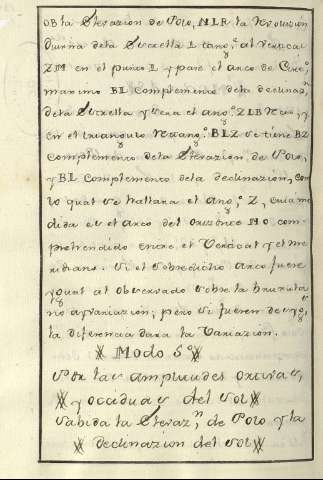 OB la Elevazion de Polo, NLR la revoluzion
diurna dela Estrella L tang.te al vertical
ZM en el punto L y pase el arco de Circ.o
maximo BL Complemento dela declinaz.n
dela Estrella y sera el ang.o ZLB Recto, y
en el triangulo Rectang.o BLZ se tiene BZ
Complemento dela Elevazion, de Polo,
y BL Complemento dela declinazion, con
lo qual se hallara el ang.o Z, cuia me
dida es el arco del orizonte HO com-
prehendido entre el Vertical y el me
ridiano. Si el sobredicho arco fuere
ygual al observado sobre la bruxula
no ay variazion; pero si fueren desyg.s
la diferencia dara la Variazion.
Modo 5o
Por las amplitudes ortivas,
y occiduas del Sol
Sabida la Elevaz.n de Polo y la
declinazion del Sol